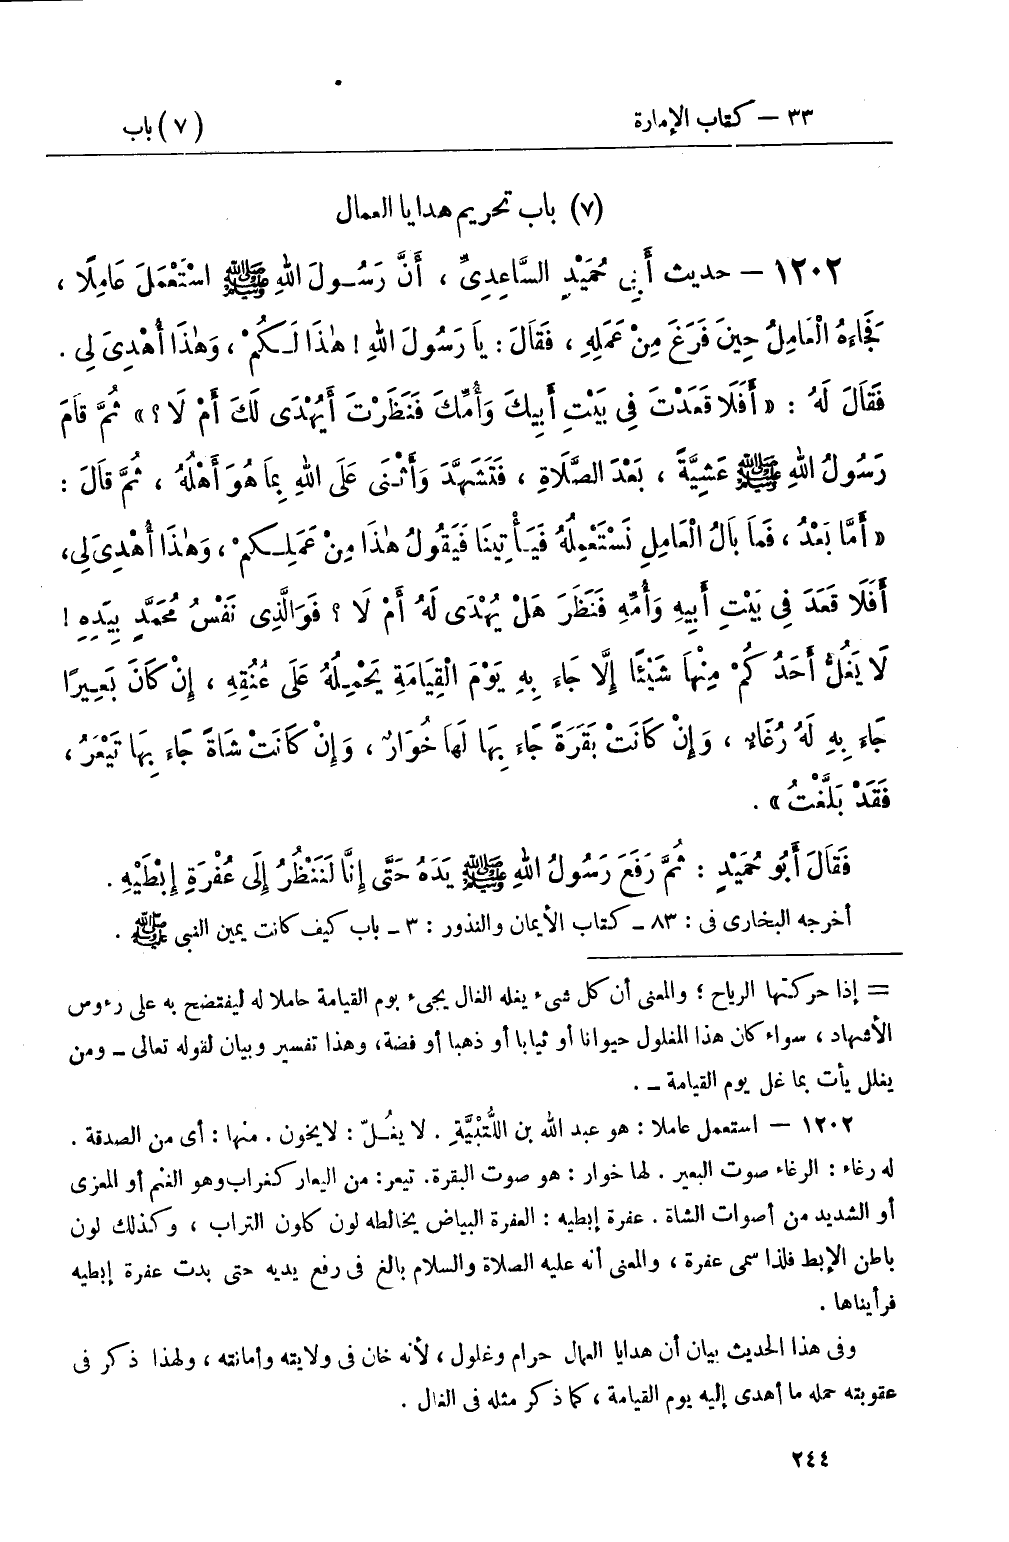 ٣٣ — كتاب الإمارة (٧) باب
(٧) باب تحريم هدايا العمال
١٢٠٢ — حديث أَبِي حُمَيْدٍ السَّاعِدِىِّ ، أَنَّ رَسُولَ اللهِ ﷺ اسْتَعْمَلَ عَامِلًا ،
فَجَاءَهُ الْعَامِلُ حِينَ فَرَغَ مِنْ عَمَلِهِ ، فَقَالَ : يَا رَسُولَ اللهِ ! هٰذَا لَكُمْ ، وَهٰذَا أُهْدِىَ لِى .
فَقَالَ لَهُ : « أَفَلَا قَعَدْتَ فِى بَيْتِ أَبِيكَ وَأُمِّكَ فَنَظَرْتَ أَيُهْدَى لَكَ أَمْ لَا ؟ » ثُمَّ قَامَ
رَسُولُ اللهِ ﷺ عَشِيَّةً ، بَعْدَ الصَّلَاةِ ، فَتَشَهَّدَ وَأَثْنَى عَلَى اللهِ بِمَا هُوَ أَهْلُهُ ، ثُمَّ قَالَ :
« أَمَّا بَعْدُ ، فَمَا بَالُ الْعَامِلِ نَسْتَعْمِلُهُ فَيَأْتِينَا فَيَقُولُ هٰذَا مِنْ عَمَلِكُمْ ، وَهٰذَا أُهْدِىَ لِى ،
أَفَلَا قَعَدَ فِى بَيْتِ أَبِيهِ وَأُمِّهِ فَنَظَرَ هَلْ يُهْدَى لَهُ أَمْ لَا ؟ فَوَالَّذِى نَفْسُ مُحَمَّدٍ بِيَدِهِ !
لَا يَغُلُّ أَحَدُكُمْ مِنْهَا شَيْئًا إِلَّا جَاءَ بِهِ يَوْمَ الْقِيَامَةِ يَحْمِلُهُ عَلَى عُنُقِهِ ، إِنْ كَانَ بَعِيرًا
جَاءَ بِهِ لَهُ رُغَاءٌ ، وَإِنْ كَانَتْ بَقَرَةً جَاءَ بِهَا لَهَا خُوَارٌ ، وَإِنْ كَانَتْ شَاةً جَاءَ بِهَا تَيْعَرُ ،
فَقَدْ بَلَّغْتُ » .
فَقَالَ أَبُو حُمَيْدٍ : ثُمَّ رَفَعَ رَسُولُ اللهِ ﷺ يَدَهُ حَتَّى إِنَّا لَنَنْظُرُ إِلَى عُفْرَةِ إِبْطَيْهِ .
أخرجه البخارى فى : ٨٣ ـ كتاب الأيمان والنذور : ٣ ـ باب كيف كانت يمين النبى ﷺ .
= إذا حركتها الرياح ؛ والمعنى أن كل شىء يغله الغال يجىء يوم القيامة حاملا له ليفتضح به على رءوس
الأشهاد ، سواء كان هذا المغلول حيوانا أو ثيابا أو ذهبا أو فضة ، وهذا تفسير وبيان لقوله تعالى ـ ومن
يغلل يأت بما غل يوم القيامة ـ .
١٢٠٢ — استعمل عاملا : هو عبد الله بن اللُّتْبِيَّةِ . لا يغُلّ : لايخون . منها : أى من الصدقة .
له رغاء : الرغاء صوت البعير . لها خوار : هو صوت البقرة . تيعر : من اليعار كغراب وهو الغنم أو المعزى
أو الشديد من أصوات الشاة . عفرة إبطيه : العفرة البياض يخالطه لون كلون التراب ، وكذلك لون
باطن الإبط فلذا سمى عفرة ، والمعنى أنه عليه الصلاة والسلام بالغ فى رفع يديه حتى بدت عفرة إبطيه
فرأيناها .
وفى هذا الحديث بيان أن هدايا العمال حرام وغلول ، لأنه خان فى ولايته وأمانته ، ولهذا ذكر فى
عقوبته حمله ما أهدى إليه يوم القيامة ، كما ذكر مثله فى الغال .
٢٤٤